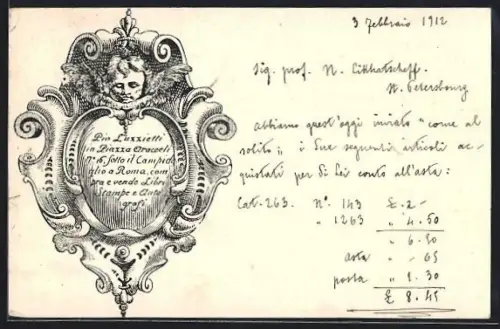 Pio Luzzietti
in Piazza Aracoeli
N.º 16. sotto il Campid
glio a Roma, com
pra e vende Libri
Stampe e Auto
grafi.
3 Febbraio 1912
Sig. prof. N. Likhatscheff.
St. Petersbourg
Abbiamo quest'oggi inviato "come al
solito" i due seguenti articoli ac-
quistati per di Lei conto all'asta:
Cat. 263. Nº 143 £. 2-
" 1263 " 4.50
" 6.50
asta " - 65
posta " 1.30
£ 8.45